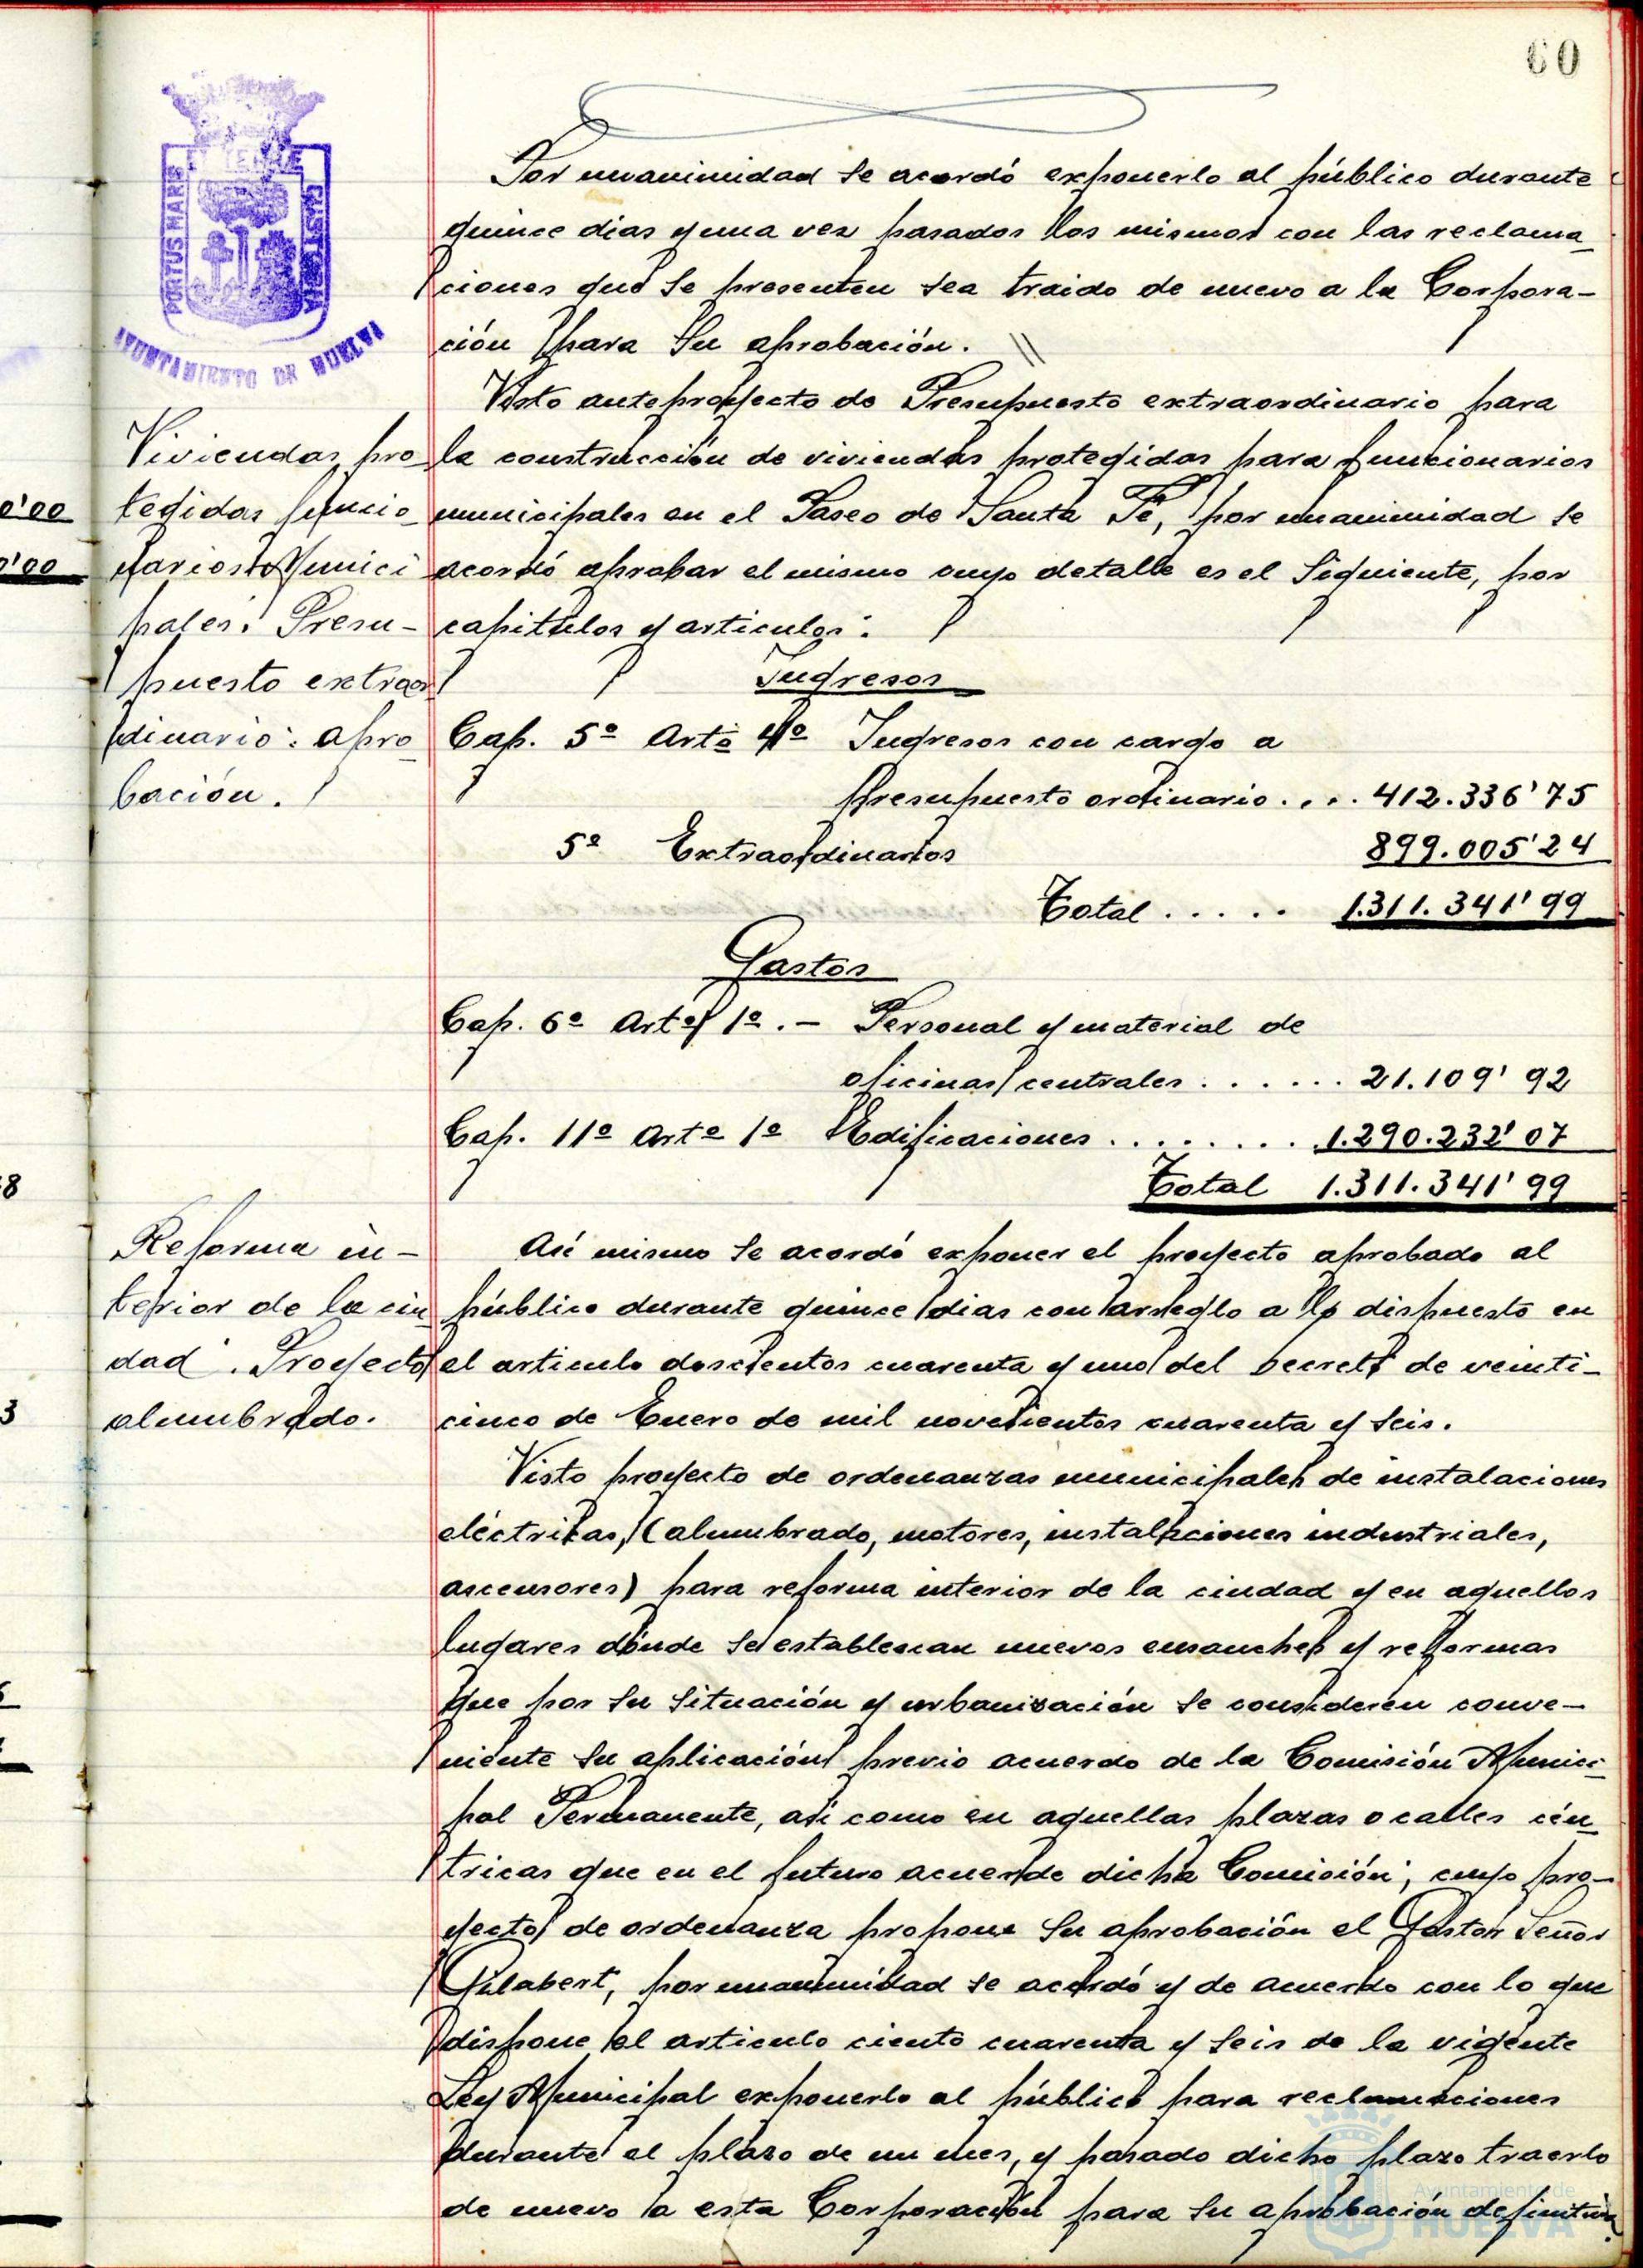 60
PORTUS MARIS
ET TERRE
CUSTODIA
AYUNTAMIENTO DE HUELVA
Por unanimidad se acordó exponerlo al público durante
quince dias y una vez pasados los mismos con las reclama
ciones que se presenten sea traido de nuevo a la Corpora-
ción para su aprobación.
Viviendas pro
tegidas funcio
narios Munici
pales: Presu-
puesto extraor
dinario: apro
bación.
Visto anteproyecto de Presupuesto extraordinario para
la construcción de viviendas protegidas para funcionarios
municipales en el Paseo de Santa Fé, por unanimidad se
acordó aprobar el mismo cuyo detalle es el siguiente, por
capitulos y articulos:
Ingresos
Cap. 5º Artº 4º Ingresos con cargo a
presupuesto ordinario.... 412.336'75
5º Extraordinarios 899.005'24
Total..... 1.311.341'99
Gastos
Cap. 6º Artº 1º.- Personal y material de
oficinas centrales...... 21.109'92
Cap. 11º Artº 1º Edificaciones........ 1.290.232'07
Total 1.311.341'99
Reforma in-
terior de la ciu
dad. Proyecto
alumbrado.
Asi mismo se acordó exponer el proyecto aprobado al
público durante quince dias con arreglo a lo dispuesto en
el articulo doscientos cuarenta y uno del Decreto de veinti-
cinco de Enero de mil novecientos cuarenta y seis.
Visto proyecto de ordenanzas municipales de instalaciones
eléctricas, (alumbrado, motores, instalaciones industriales,
ascensores) para reforma interior de la ciudad y en aquellos
lugares donde se establezcan nuevos ensanches y reformas
que por su situación y urbanización se consideren conve-
niente su aplicación previo acuerdo de la Comisión Munici
pal Permanente, asi como en aquellas plazas o calles cén
tricas que en el futuro acuerde dicha Comisión; cuyo pro-
yecto de ordenanza propone su aprobación el Gestor Señor
Gilabert, por unanimidad se acordó y de acuerdo con lo que
dispone el articulo ciento cuarenta y seis de la vigente
Ley Municipal exponerlo al público para reclamaciones
durante el plazo de un mes, y pasado dicho plazo traerlo
de nuevo a esta Corporación para su aprobación definitiva.
0'00
0'00
8
3
Ayuntamiento de
HUELVA